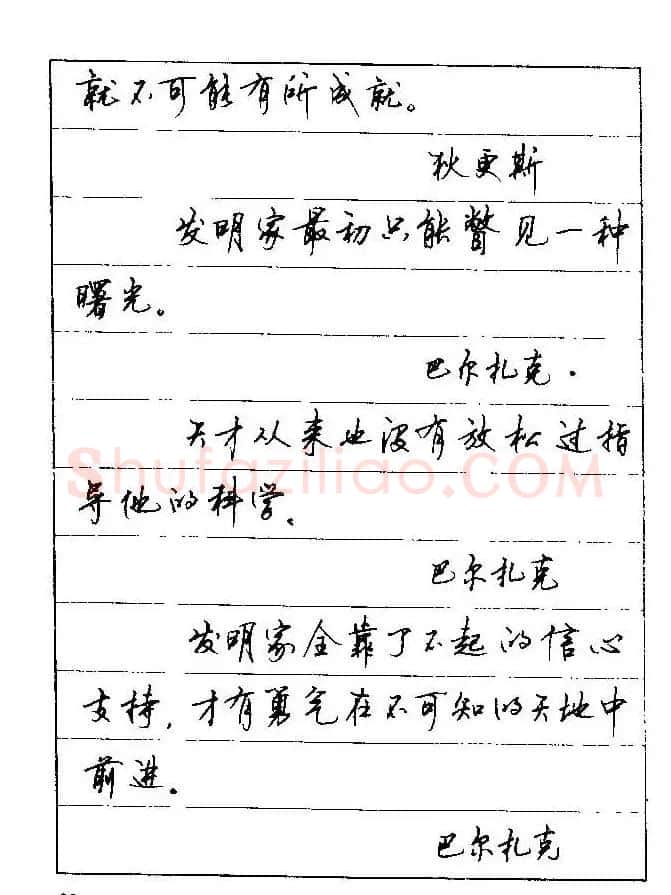 就不可能有所成就。
狄更斯
发明家最初只能瞥见一种
曙光。
巴尔扎克.
天才从来也没有放松过指
导他的科学.
Shufaziliao.com
巴尔扎克
发明家全靠了不起的信心
支持,才有勇气在不可知的天地中
前进。
巴尔扎克